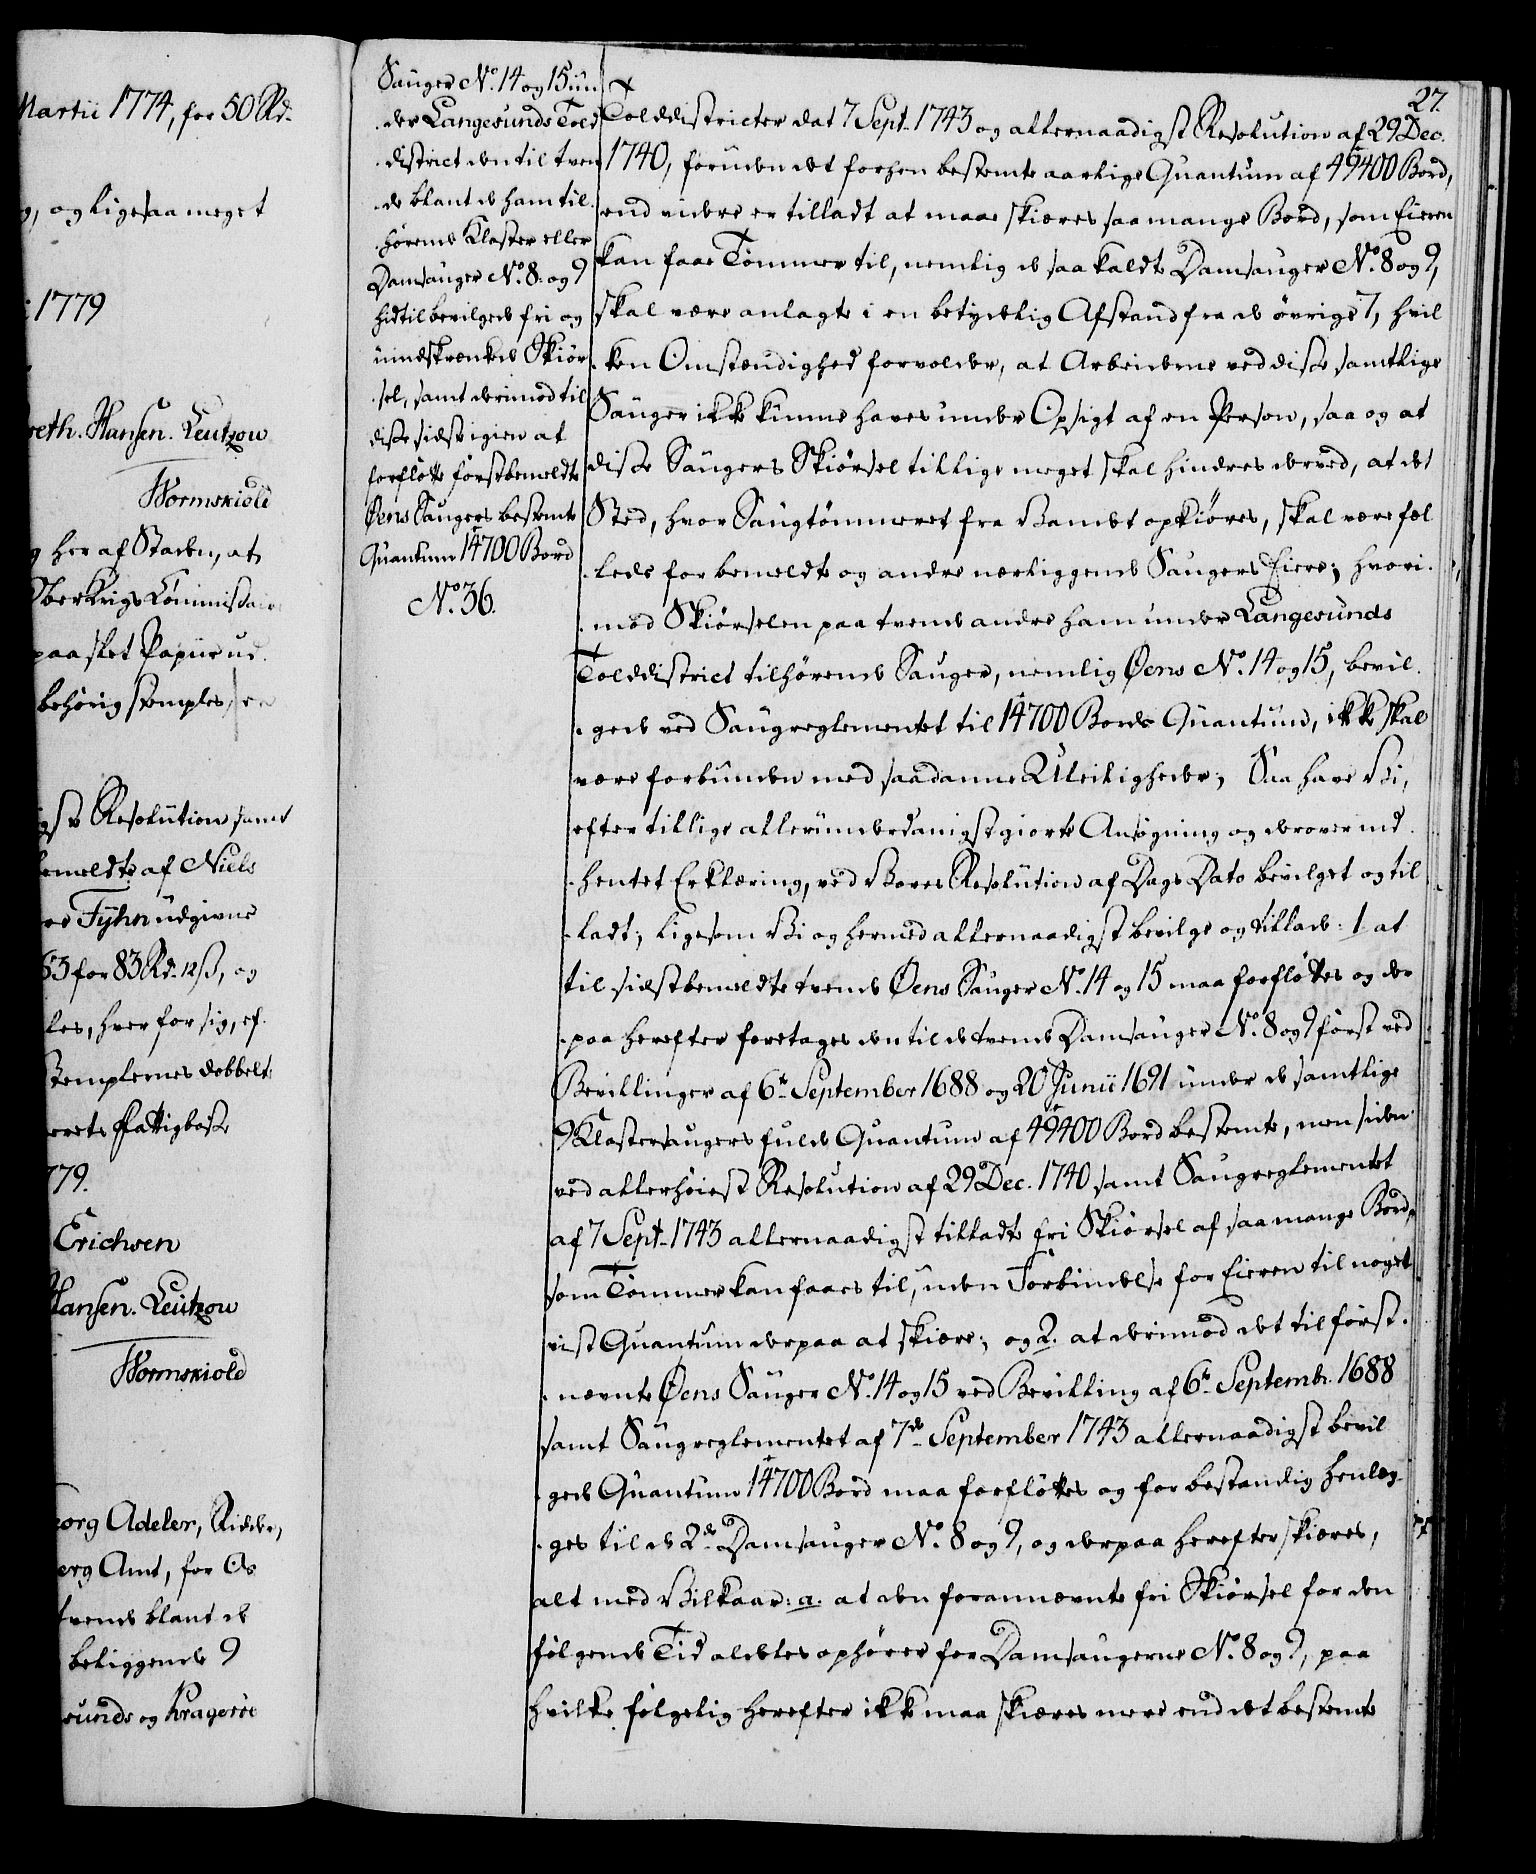 Martii 1774, for 50 Rd.
og ligesaa meget
1779
Hansen. Leutzow
Wormskiold
her af Staden, at
Ober Krigs Commissair
paa slet Papiir ud
behørig stemples,
Resolution samt
bemeldte af Niels
Tyhn udgivne
63 for 83 Rd. 12 ß, og
les, hver for sig, ef.
Stemplernes dobbelt
Fattigbøsse
779.
Erichsen
Hansen. Leutzow
Wormskiold
Georg Adeler, Ridder,
berg Amt, for Os
tvende blant de
beliggende 9
sunds og Kragerøe
Sauger No. 14 og 15 un
der Langesunds Told
district den til tven
de blant de ham til
hørende Kloster eller
Damsauger No. 8. og 9
hidtil bevilgede fri og
uindskrænkede Skiør
sel, samt derimod til
disse sidste igien at
forfløtte førstbemeldte
Øens Saugers bestemte
Quantum 14700 Bord
No. 36.
27.
Tolddistricter dat 7 Sept. 1743 og allernaadigst Resolution af 29 Dec.
1740, foruden det forhen bestemte aarlige Quantum af 49400 Bord,
end videre er tilladt at maae skiæres saa mange Bord, som Eieren
kan faae Tømmer til, nemlig de saa kaldte Damsauger No. 8 og 9,
skal være anlagte i en betydelig Afstand fra de øvrige 7, hvil
ken Omstændighed forvolder, at Arbeiderne ved disse samtlige
Sauger ikke kunne haves under Opsigt af en Person, saa og at
disse Saugers Skiørsel tillige meget skal hindres derved, at det
Sted, hvor Saugtømmeret fra Vandet opkiøres, skal være fæl
leds for bemeldte og andre nærliggende Saugers Eiere; hvori
mod Skiørselen paa tvende andre ham under Langesunds
Tolddistrict tilhørende Sauger, nemlig Øens No. 14 og 15, bevil
gede ved Saugreglementet til 14700 Bords Quantum, ikke skal
være forbunden med saadanne Uleiligheder; Saa have Vi,
efter tillige allerunderdanigst giorte Ansøgning og derover ind
hentet Erklæring, ved Vores Resolution af Dags Dato bevilget og til
ladt; ligesom Vi og hermed allernaadigst bevilge og tillade: 1. at
til sidstbemeldte tvende Øens Sauger No. 14 og 15 maa forfløttes og der
paa herefter foretages den til de tvende Damsauger No. 8 og 9 først ved
Bevillinger af 6te September 1688 og 20 Junii 1691 under de samtlige
9 Klostersaugers fulde Quantum af 49400 Bord bestemte, men siden
ved allerhøieste Resolution af 29 Dec. 1740 samt Saugreglementet
af 7 Sept. 1743 allernaadigst tilladte fri Skiørsel af saa mange Bord,
som Tømmer kan faaes til, uden Forbindelse for Eieren til noget
vist Quantum derpaa at skiære; og 2. at derimod det til først
nævnte Øens Sauger No. 14 og 15 ved Bevilling af 6te Septembr. 1688
samt Saugreglementet af 7de September 1743 allernaadigst bevil
gede Quantum 14700 Bord maa forfløttes og for bestandig henlæg
ges til de 2de Damsauger No. 8 og 9, og derpaa herefter skiæres,
alt med Vilkaar: a. at den forannævnte fri Skiørsel for den
følgende Tid aldeles ophører for Damsaugerne No. 8 og 9, paa
hvilke følgelig herefter ikke maa skiæres mere end det bestemte